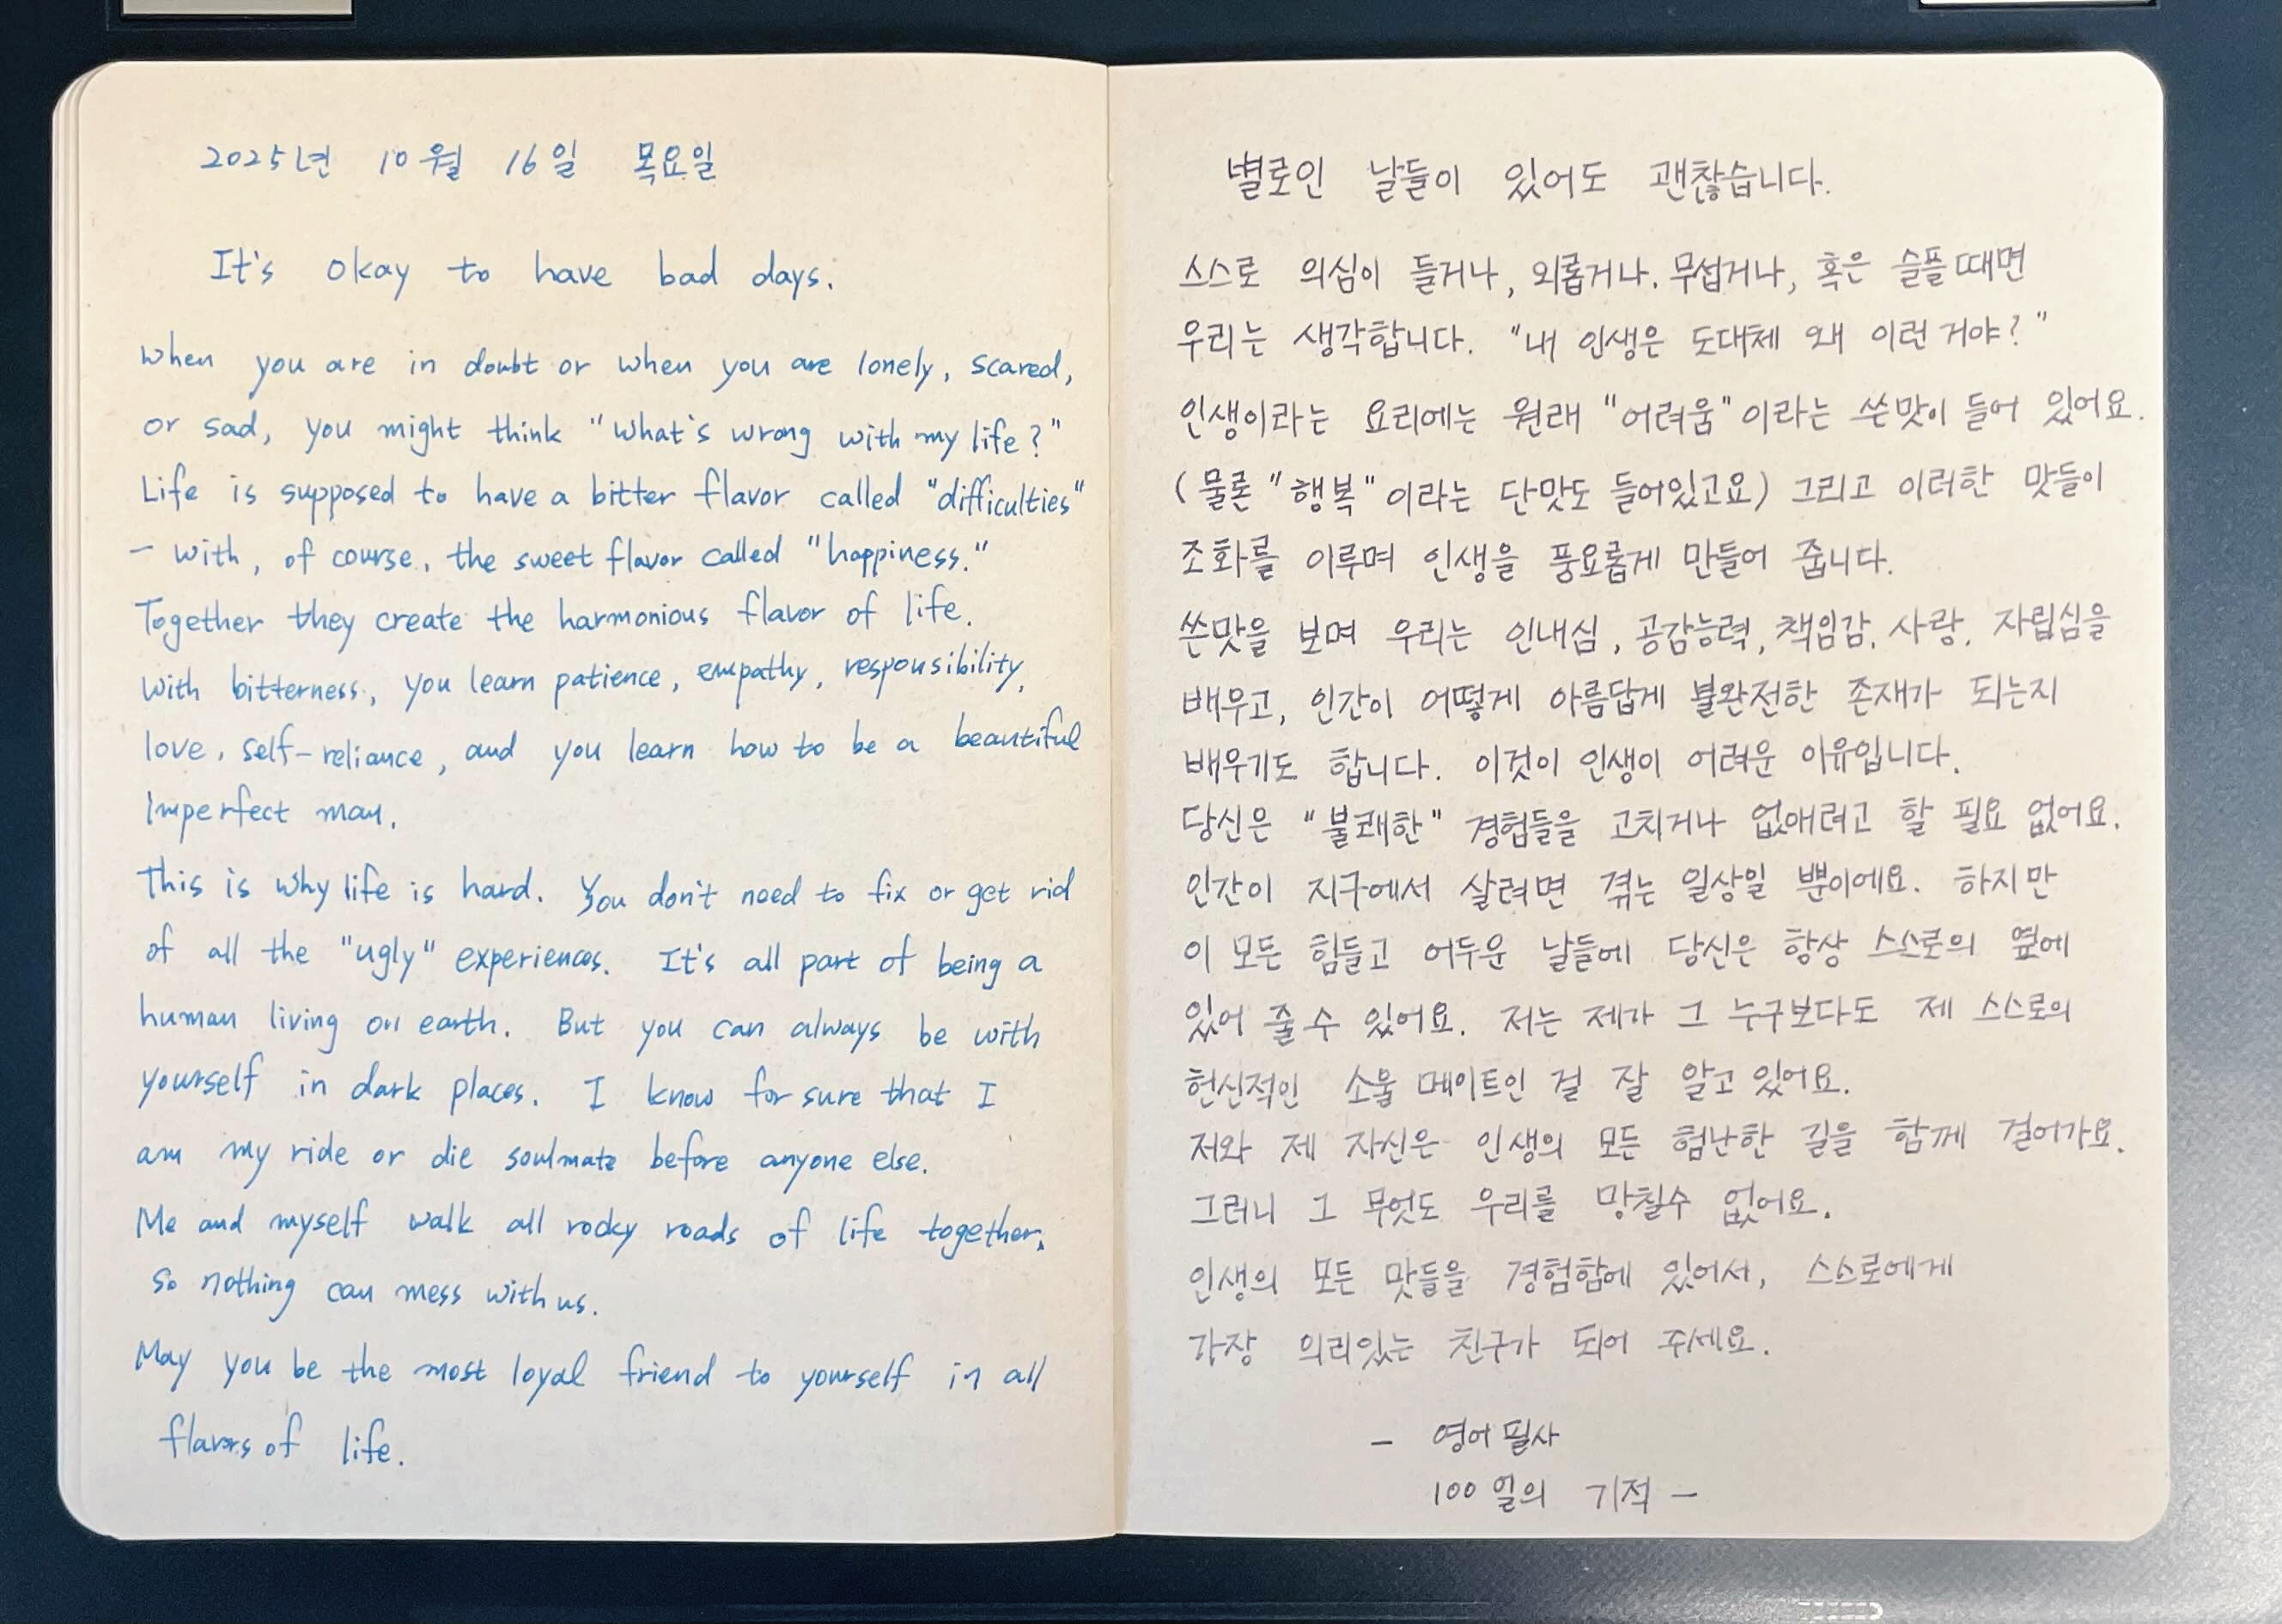 2025년 10월 16일 목요일
It's okay to have bad days.
When you are in doubt or when you are lonely, scared,
or sad, you might think "What's wrong with my life?"
Life is supposed to have a bitter flavor called "difficulties"
- with, of course, the sweet flavor called "happiness."
Together they create the harmonious flavor of life.
With bitterness, you learn patience, empathy, responsibility,
love, self-reliance, and you learn how to be a beautiful
Imperfect man.
This is why life is hard. You don't need to fix or get rid
of all the "ugly" experiences. It's all part of being a
human living on earth. But you can always be with
yourself in dark places. I know for sure that I
am my ride or die soulmate before anyone else.
Me and myself walk all rocky roads of life together,
so nothing can mess with us.
May you be the most loyal friend to yourself in all
flavors of life.
별로인 날들이 있어도 괜찮습니다.
스스로 의심이 들거나, 외롭거나, 무섭거나, 혹은 슬플때면
우리는 생각합니다. "내 인생은 도대체 왜 이런 거야?"
인생이라는 요리에는 원래 "어려움"이라는 쓴맛이 들어 있어요.
(물론 "행복"이라는 단맛도 들어있고요) 그리고 이러한 맛들이
조화를 이루며 인생을 풍요롭게 만들어 줍니다.
쓴맛을 보며 우리는 인내심, 공감능력, 책임감, 사랑, 자립심을
배우고, 인간이 어떻게 아름답게 불완전한 존재가 되는지
배우기도 합니다. 이것이 인생이 어려운 이유입니다.
당신은 "불쾌한" 경험들을 고치거나 없애려고 할 필요 없어요.
인간이 지구에서 살려면 겪는 일상일 뿐이에요. 하지만
이 모든 힘들고 어두운 날들에 당신은 항상 스스로의 옆에
있어 줄 수 있어요. 저는 제가 그 누구보다도 제 스스로의
헌신적인 소울 메이트인 걸 잘 알고 있어요.
저와 제 자신은 인생의 모든 험난한 길을 함께 걸어가요.
그러니 그 무엇도 우리를 망칠수 없어요.
인생의 모든 맛들을 경험함에 있어서, 스스로에게
가장 의리있는 친구가 되어 주세요.
- 영어 필사
100일의 기적 -